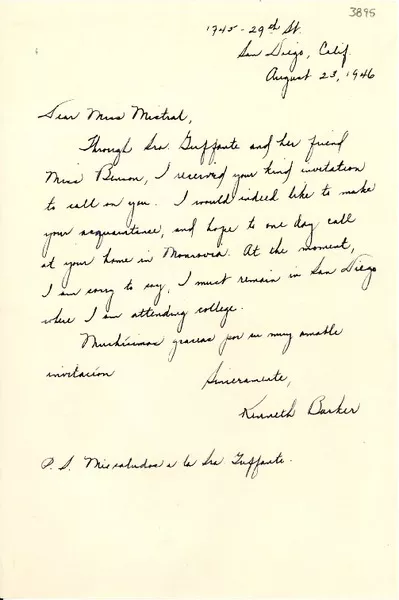 3895
1745 - 29th St.
San Diego, Calif.
August 23, 1946
Dear Miss Mistral,
Through Sra. Guffante and her friend
Miss Benson, I received your kind invitation
to call on you. I would indeed like to make
your acquaintence, and hope to one day call
at your home in Monrovia. At the moment,
I am sorry to say, I must remain in San Diego
where I am attending college.
Muchísimas gracias por su muy amable
invitación
Sinceramente,
Kenneth Barker
P. S. Mis saludos a la Sra. Guffante.